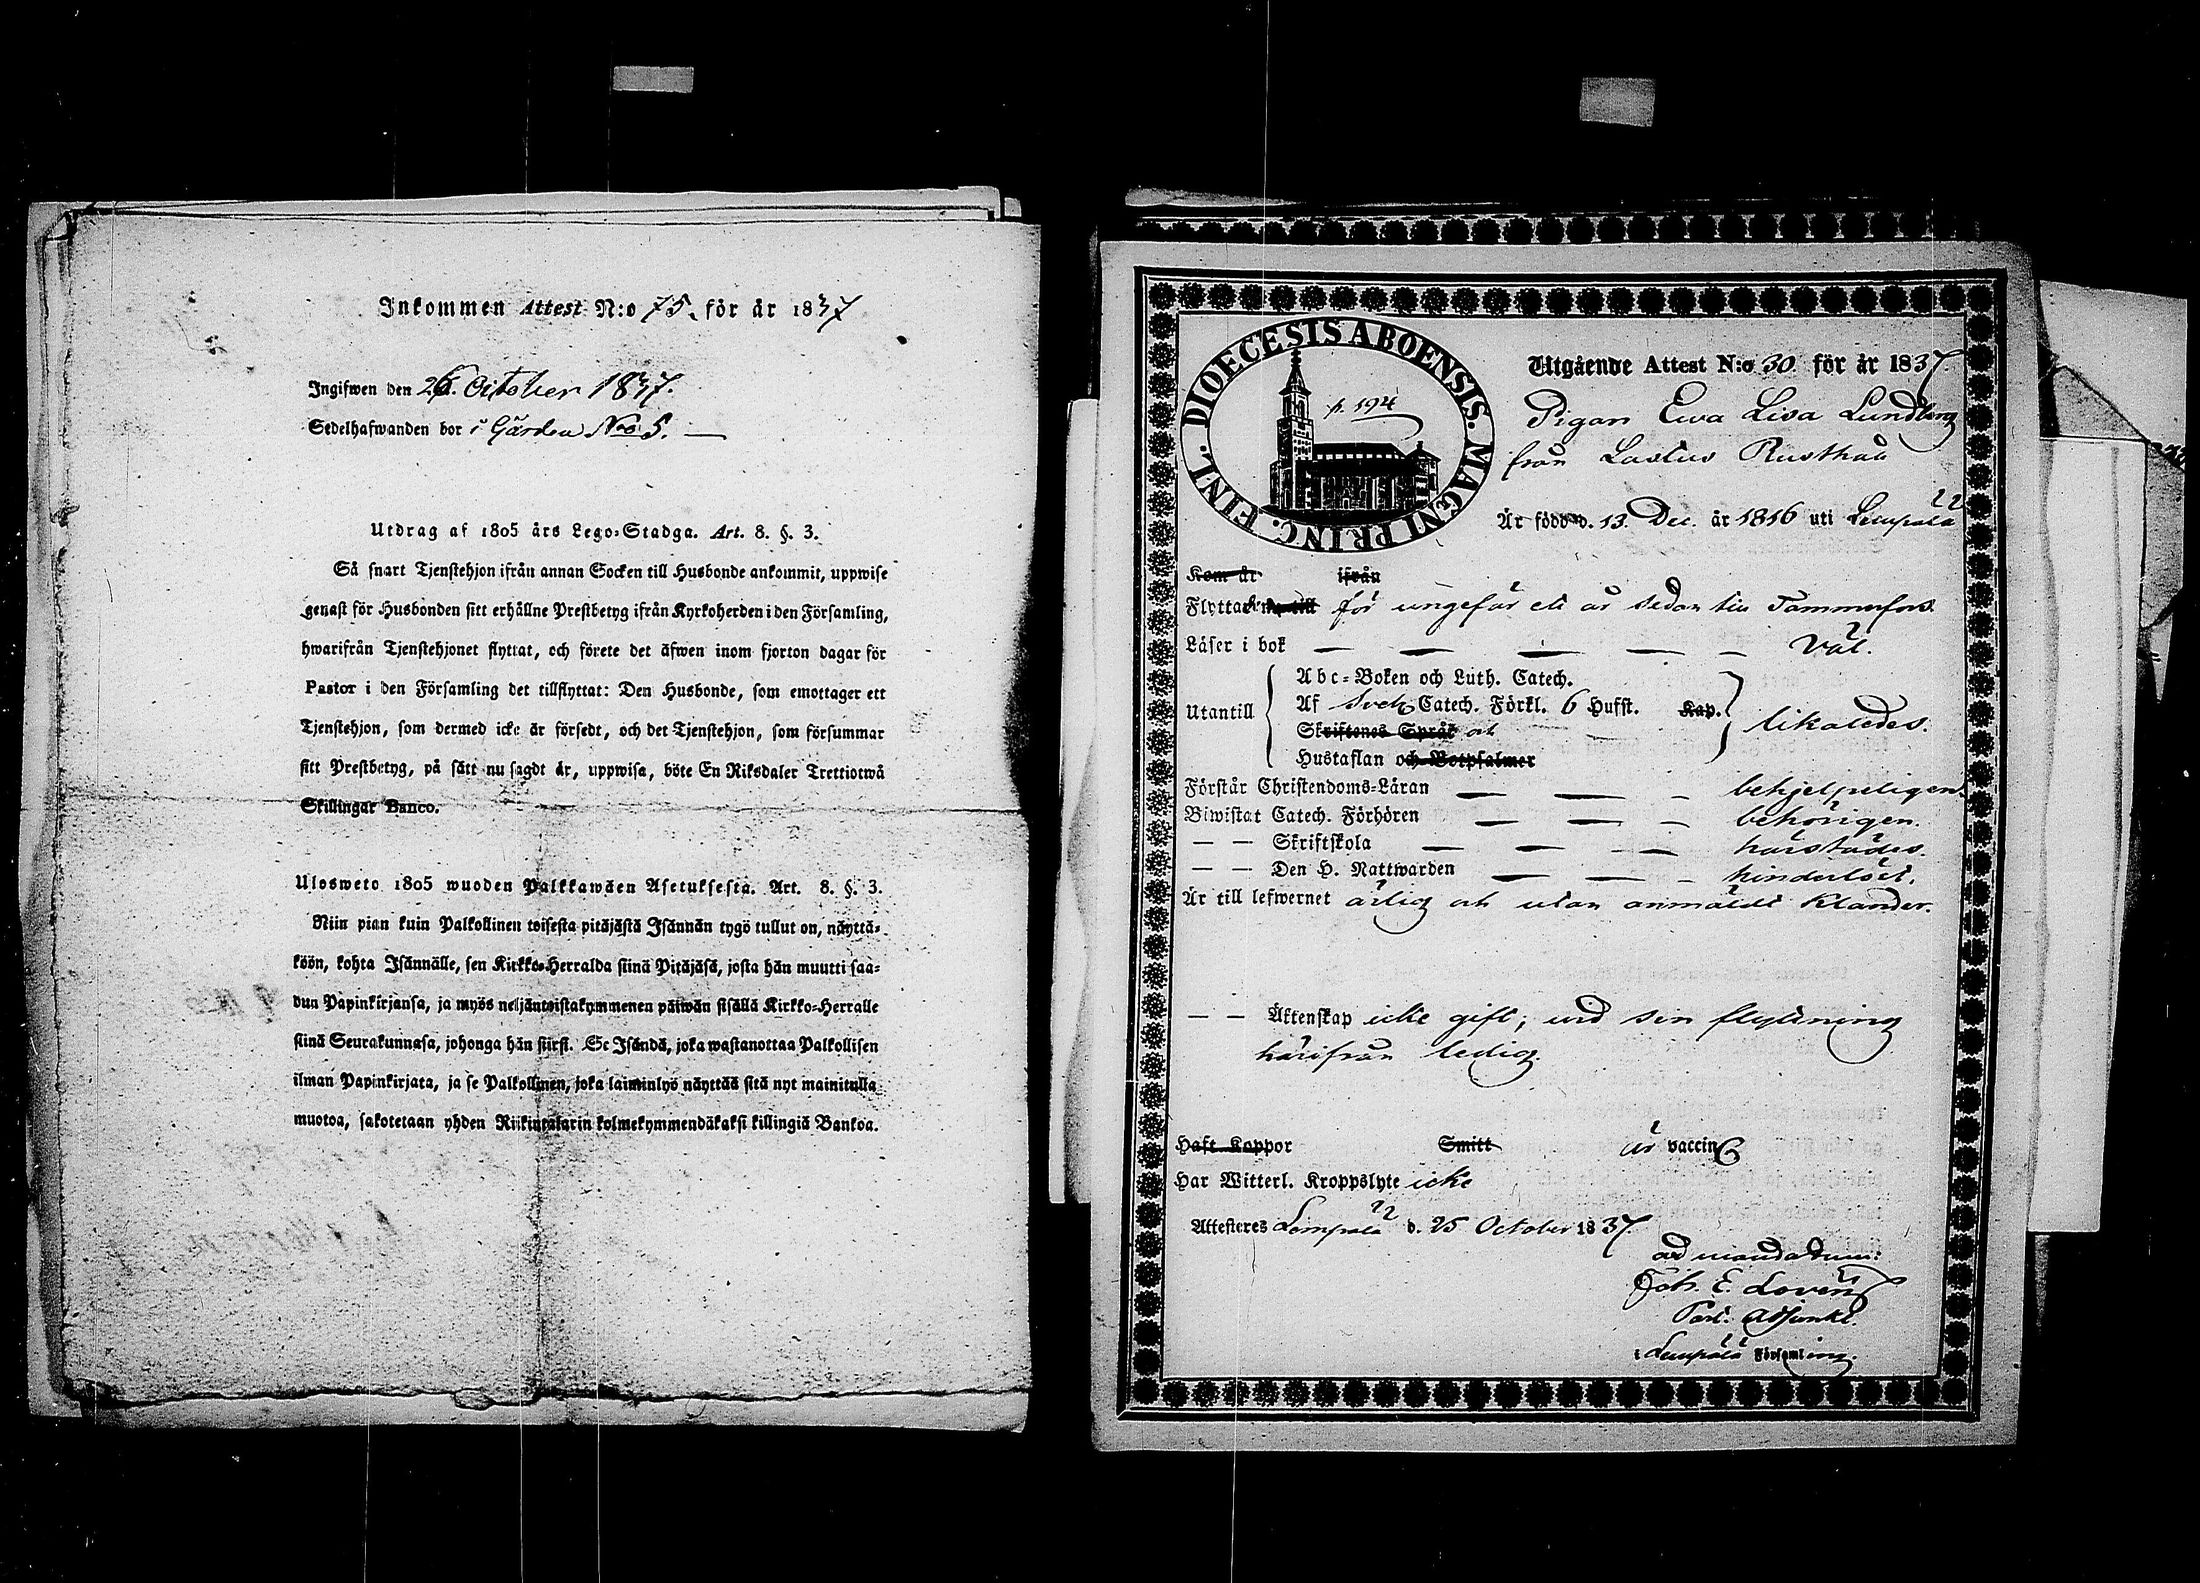 Inkommen Attest N:o 75. för år 1837
Ingifwen den 26. October 1837.
Sedelhafwanden bor i Gården N:o 5. —
Utdrag af 1805 års Lego-Stadga. Art. 8. §. 3.
Så snart Tjenstehjon ifrån annan Socken till Husbonde ankommit, uppwise
genast för Husbonden sitt erhållne Prestbetyg ifrån Kyrkoherden i den Församling,
hwarifrån Tjenstehjonet flyttat, och förete det äfwen inom fjorton dagar för
Pastor i den Församling det tillflyttat: Den Husbonde, som emottager ett
Tjenstehjon, som dermed icke är försedt, och det Tjenstehjon, som försummar
sitt Prestbetyg, på sätt nu sagdt är, uppwisa, böte En Riksdaler Trettiotwå
Skillingar Banco.
Ulosweto 1805 wuoden Palkkawäen Asetuksesta. Art. 8. §. 3.
Niin pian kuin Palkollinen toisesta pitäjästä Isännän tygö tullut on, näyttä-
köön, kohta Isännälle, sen Kirkko-Herralda siinä Pitäjäsä, josta hän muutti saa-
dun Papinkirjansa, ja myös neljäntoistakymmenen päiwän sisällä Kirkko-Herralle
siinä Seurakunnasa, johonga hän siirsi. Se Isändä, joka wastanottaa Palkollisen
ilman Papinkirjata, ja se Palkollinen, joka laiminlyö näyttää sitä nyt mainitulla
muotoa, sakotetaan yhden Riikintalarin kolmekymmendäkaksi killingiä Bankoa.
DIOECESIS ABOENSIS. MAGNI PRINC. FINL.
p. 194
Utgående Attest N:o 30. för år 1837.
Pigan Ewa Lisa Lundberg
från Lastus Rusthåll
Är född d. 13. Dec. år 1816 uti Lempälä
Kom år ifrån
Flyttade för ungefär ett år sedan till Tammerfors.
Läser i bok — — — — — Väl.
Utantill
Abc-Boken och Luth. Catech.
Af Sveb. Catech. Förkl. 6 Hufst. Kap.
Skriftenes Språk och
Hustaflan och Botpsalmer
likaledes.
Förstår Christendoms-Läran — — — behjelpeligen.
Biwistat Catech. Förhören — — — behörigen.
— — Skriftskola — — — härstädes.
— — Den H. Nattwarden — — — hinderlöst.
Är till lefwernet ärlig och utan anmäldt klander.
— — Äktenskap icke gift; wid sin flyttning
härifrån ledig.
Haft Koppor Smitt är vaccin.
Har Witterl. Kroppslyte icke
Attesteres Lempälä d. 25 October 1837.
ad mandatum:
Joh. E. Lovén
Past. Adjunkt.
i Lempälä Församling.